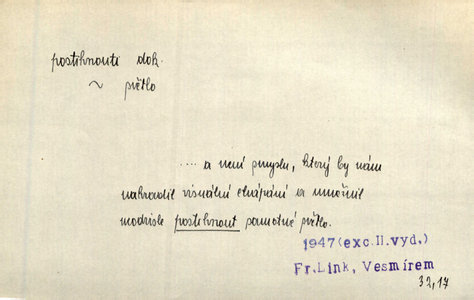 postihnouti dok.
~ světlo
.... a není smyslu, který by nám
nahradil visuální chápání a umožnil
modrisle postihnout samotné světlo.
1947 (exc. II. vyd.)
Fr. Link, Vesmírem
32,17